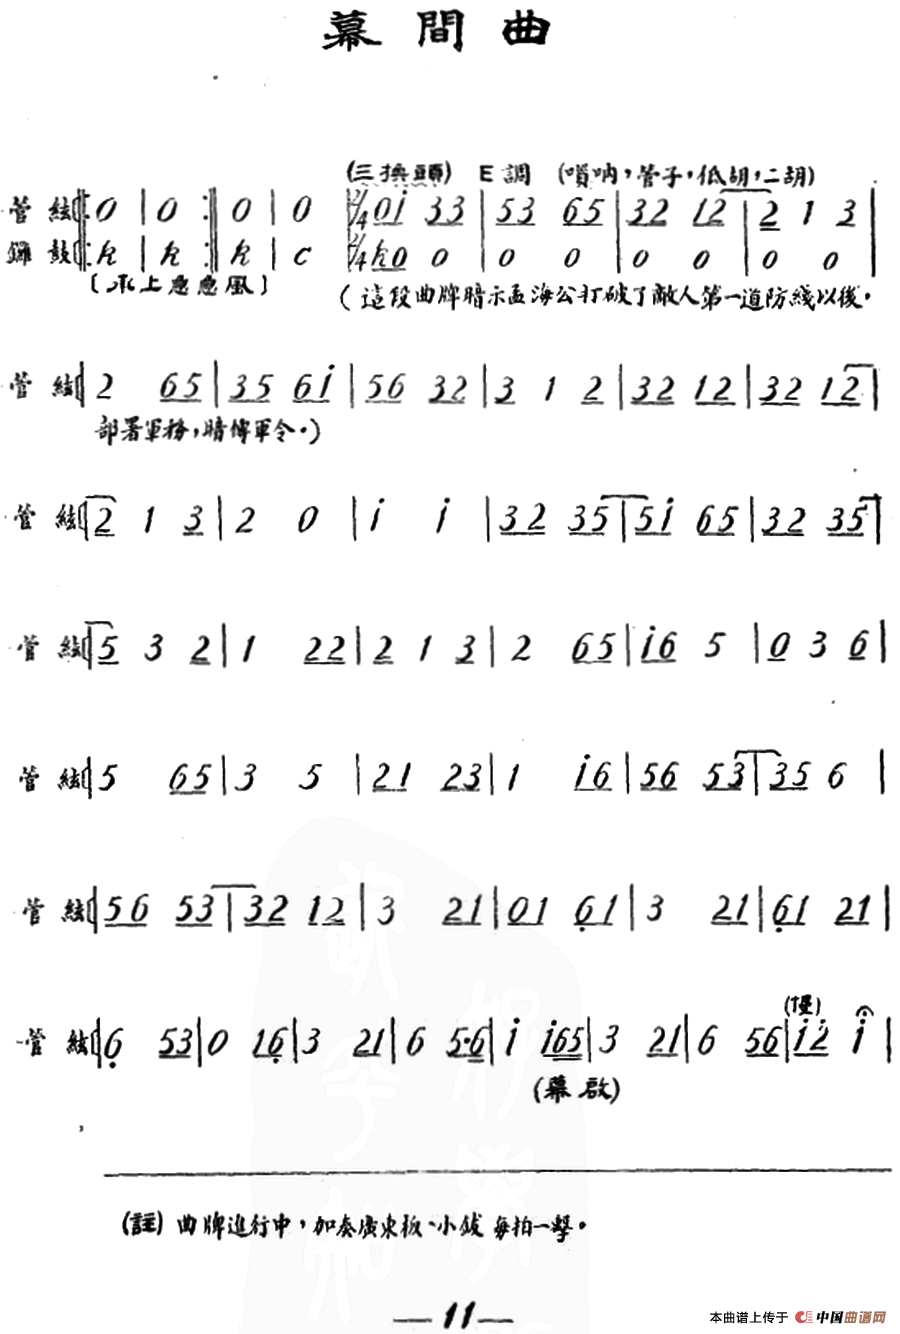 幕間曲
(三換頭) E調 (嗩吶，管子，低胡，二胡)
管絃 0 | 0 :‖ 0 | 0 2/4 0i 33 | 53 65 | 32 12 | 2 1 3 |
鑼鼓 K | K :‖ K | C 2/4 K0 0 | 0 0 | 0 0 | 0 0 |
〔承上急急風〕 (這段曲牌暗示孟海公打破了敵人第一道防綫以後，
管絃 2 65 | 35 6i | 56 32 | 3 1 2 | 32 12 | 32 12 |
部署軍務，暗傳軍令。)
管絃 2 1 3 | 2 0 | i i | 32 35 | 5i 65 | 32 35 |
管絃 5 3 2 | 1 22 | 2 1 3 | 2 65 | i6 5 | 0 3 6 |
管絃 5 65 | 3 5 | 21 23 | 1 i6 | 56 53 | 35 6 |
管絃 56 53 | 32 12 | 3 21 | 01 61 | 3 21 | 61 21 |
(慢)
管絃 6 53 | 0 16 | 3 21 | 6 5·6 | i i65 | 3 21 | 6 56 | i2 i |
(幕啟)
(註) 曲牌進行中，加奏廣東板、小鈸 每拍一擊。
—11—
本曲谱上传于 中国曲谱网